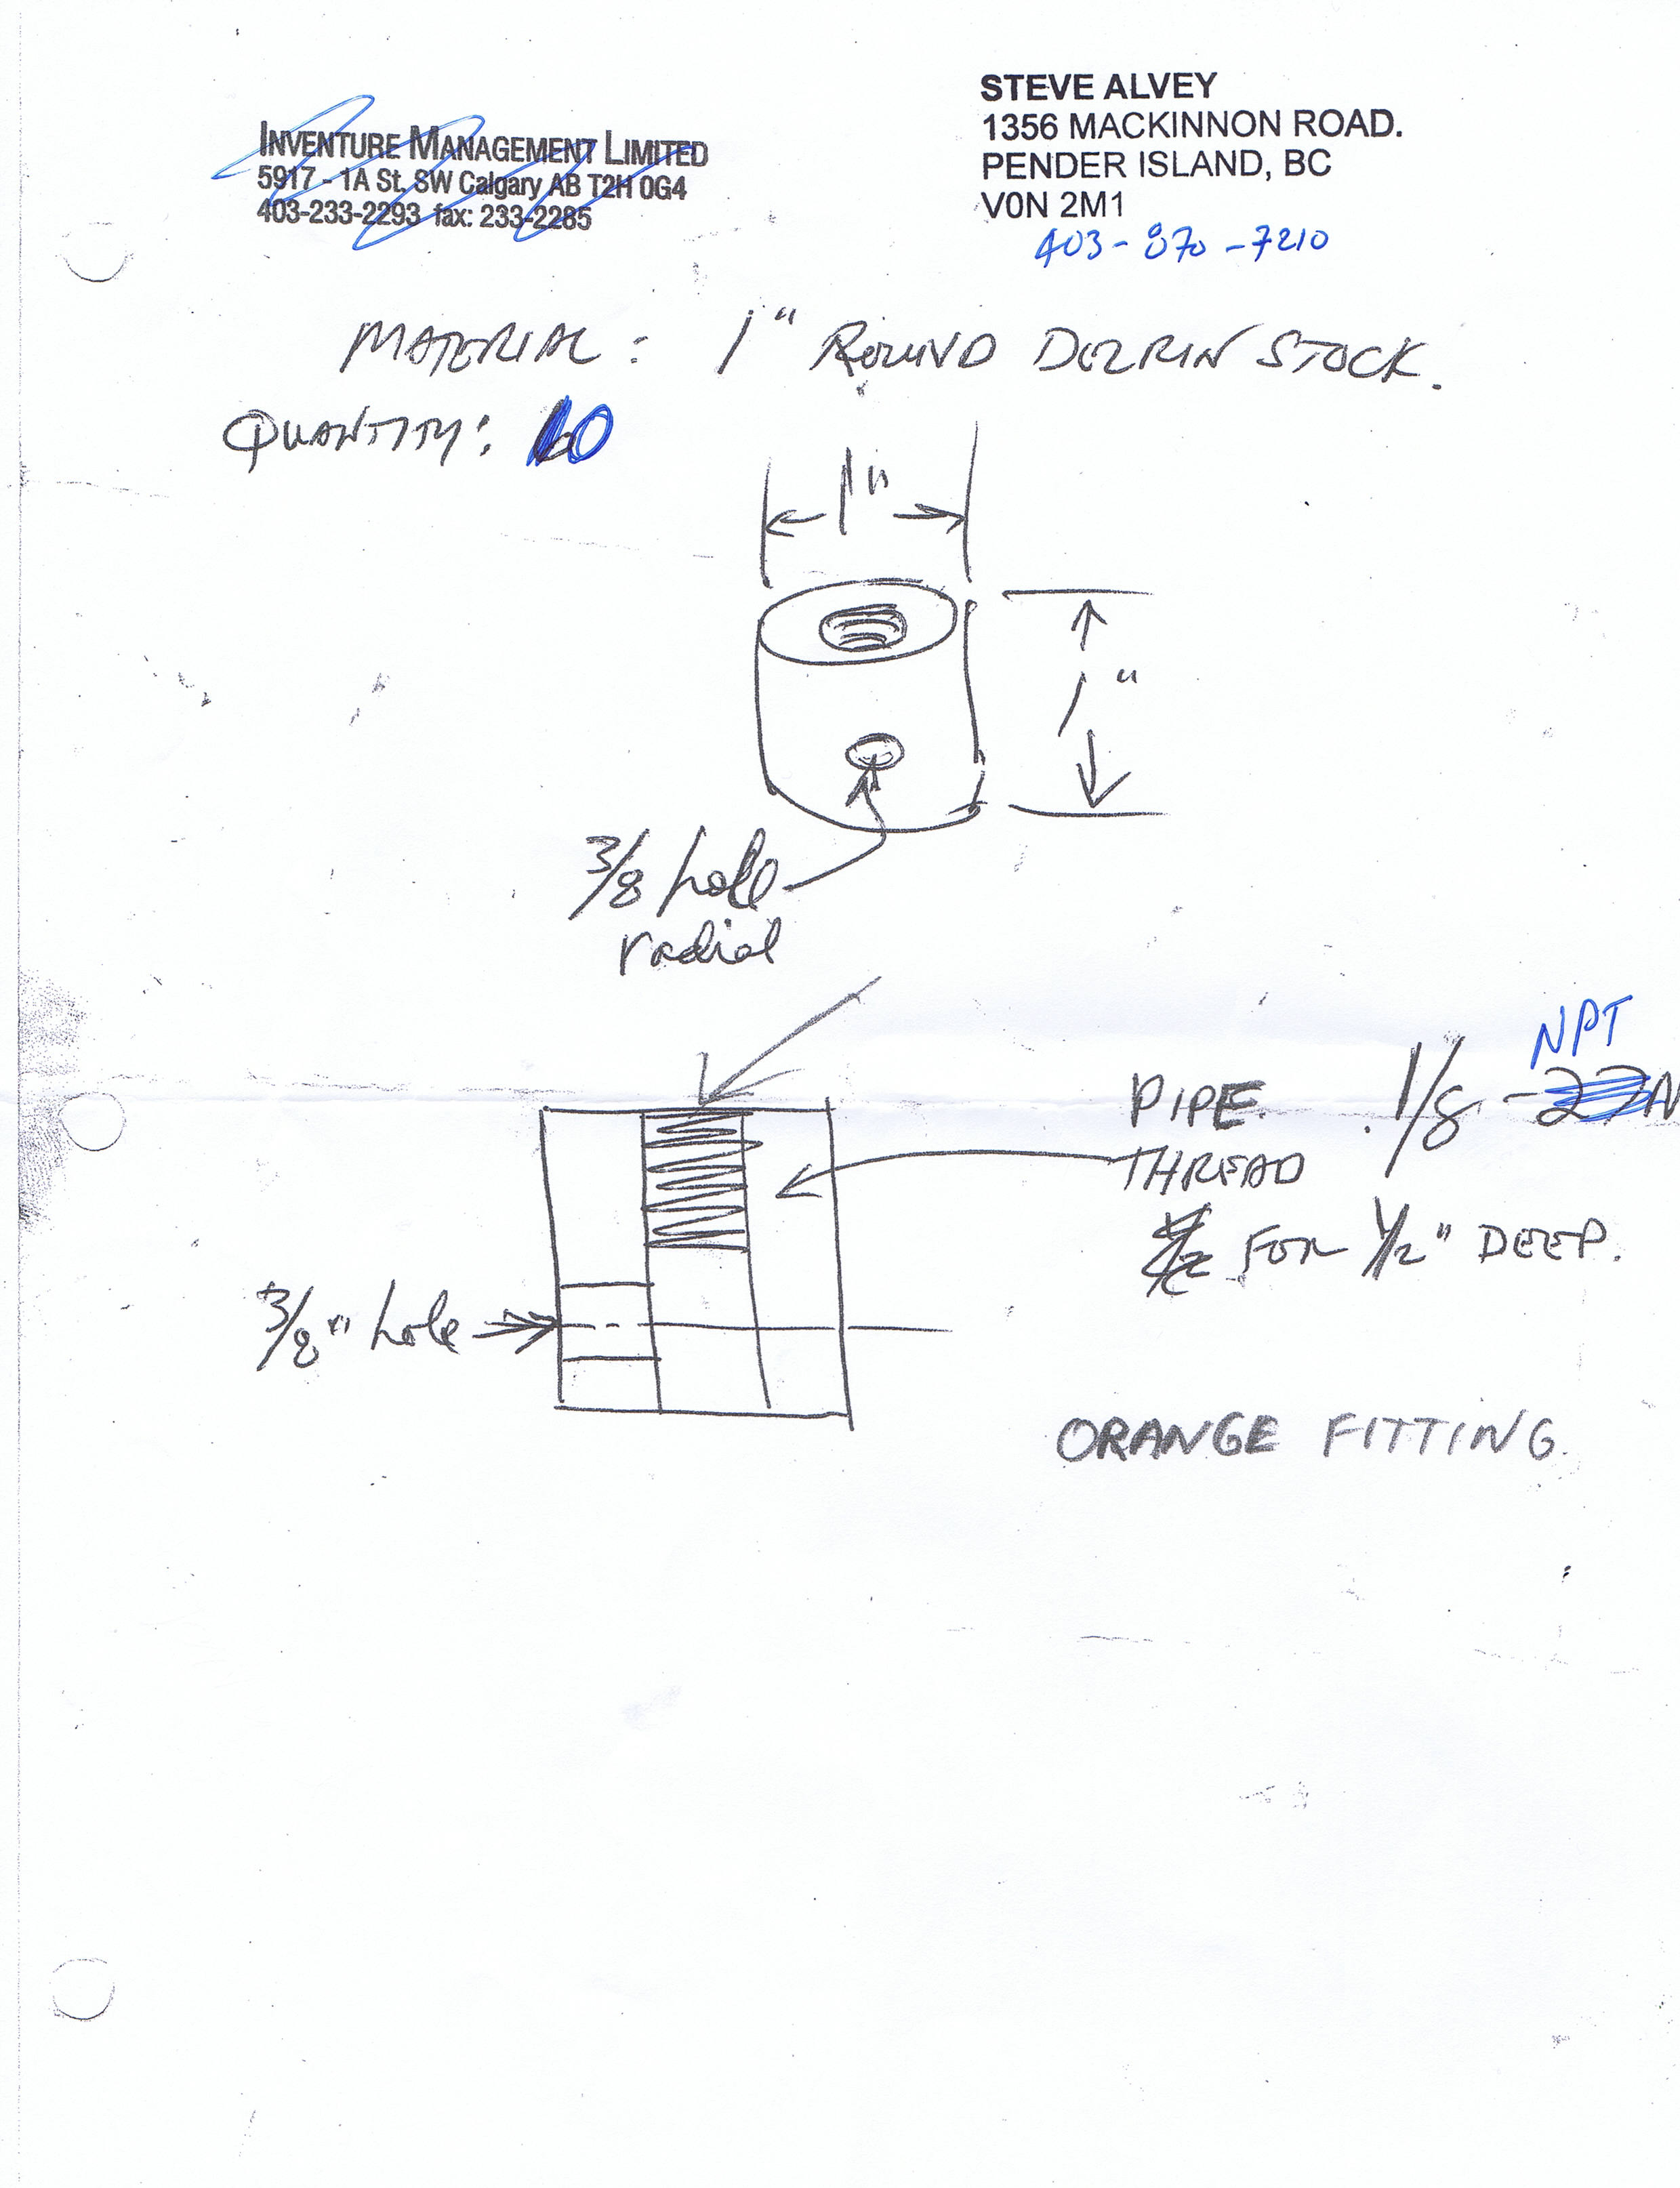 INVENTURE MANAGEMENT LIMITED
5917 - 1A St. SW Calgary AB T2H 0G4
403-233-2293 fax: 233-2285
STEVE ALVEY
1356 MACKINNON ROAD.
PENDER ISLAND, BC
V0N 2M1
403-870-7210
MATERIAL: 1" ROUND DELRIN STOCK.
QUANTITY: 10
1"
1"
3/8 hole
radial
NPT
PIPE 1/8 - 27N
THREAD
FOR 1/2" DEEP.
3/8" hole
ORANGE FITTING.